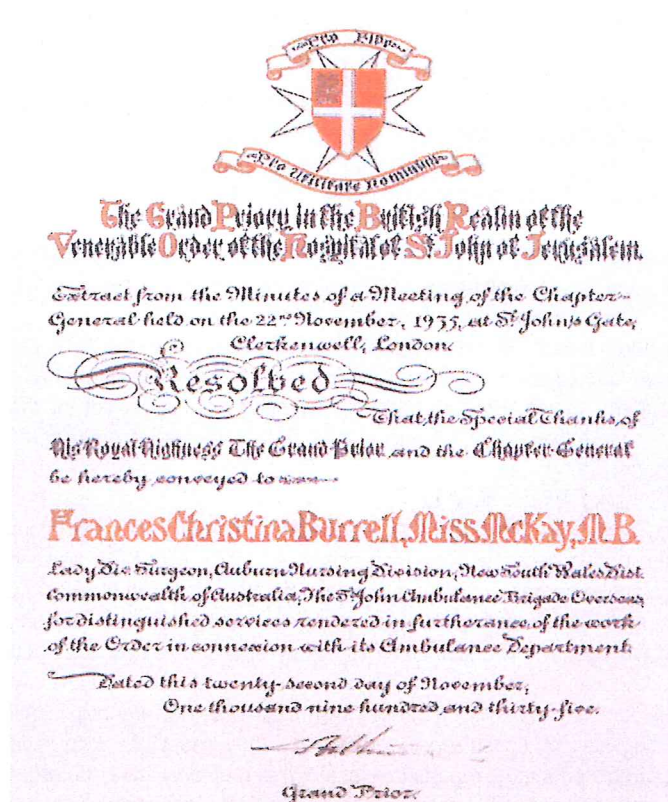 Pro Fide
Pro Utilitate Hominum
The Grand Priory in the British Realm of the
Venerable Order of the Hospital of St John of Jerusalem.
Extract from the Minutes of a Meeting of the Chapter-
General held on the 22nd November, 1935, at St John's Gate,
Clerkenwell, London.
Resolved
That the Special Thanks of
His Royal Highness The Grand Prior and the Chapter-General
be hereby conveyed to
Frances Christina Burrell, Miss McKay, M.B.
Lady Div. Surgeon, Auburn Nursing Division, New South Wales Dist.
Commonwealth of Australia, The St John Ambulance Brigade Overseas,
for distinguished services rendered in furtherance of the work
of the Order in connexion with its Ambulance Department.
Dated this twenty-second day of November,
One thousand nine hundred and thirty-five.
Grand Prior.